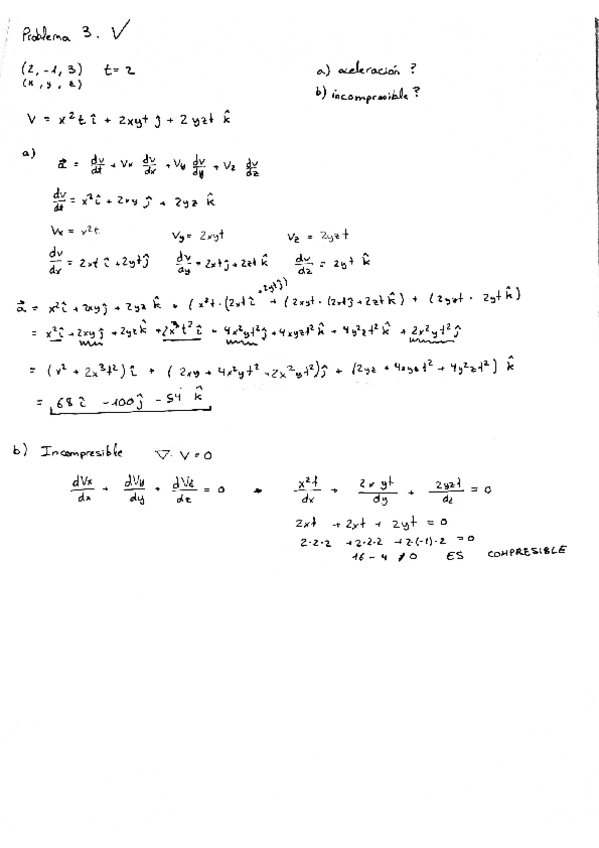 Problema 3. √
(2, -1, 3)   t = 2
(x, y, z)
a) aceleración ?
b) incompresible ?
V = x²t î + 2xyt ĵ + 2yzt k̂
a)
a⃗ = dv/dt + Vx dv/dx + Vy dv/dy + Vz dv/dz
dv/dt = x² î + 2xy ĵ + 2yz k̂
Vx = x²t   Vy = 2xyt   Vz = 2yzt
dv/dx = 2xt î + 2yt ĵ   dv/dy = 2xt ĵ + 2zt k̂   dv/dz = 2yt k̂
a⃗ = x² î + 2xy ĵ + 2yz k̂ + (x²t · (2xt î + 2yt ĵ) + (2xyt · (2xt ĵ + 2zt k̂) + (2yzt · 2yt k̂)
= x² î + 2xy ĵ + 2yz k̂ + 2x³t² î + 4x²yt² ĵ + 4xyzt² k̂ + 4y²zt² k̂ + 2x²yt² ĵ
= (x² + 2x³t²) î + (2xy + 4x²yt² + 2x²yt²) ĵ + (2yz + 4xyzt² + 4y²zt²) k̂
= 68 î - 100 ĵ - 54 k̂
b) Incompresible   ∇ · V = 0
dVx/dx + dVy/dy + dVz/dz = 0   x²t/dx + 2xyt/dy + 2yzt/dz = 0
2xt + 2xt + 2yt = 0
2·2·2 + 2·2·2 + 2·(-1)·2 = 0
16 - 4 ≠ 0   ES   COMPRESIBLE